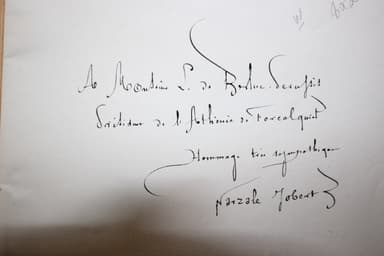 A Monsieur L. de Berluc-Perussis
Président de l'Athénée de Forcalquier
Hommage très sympathique
Jobert